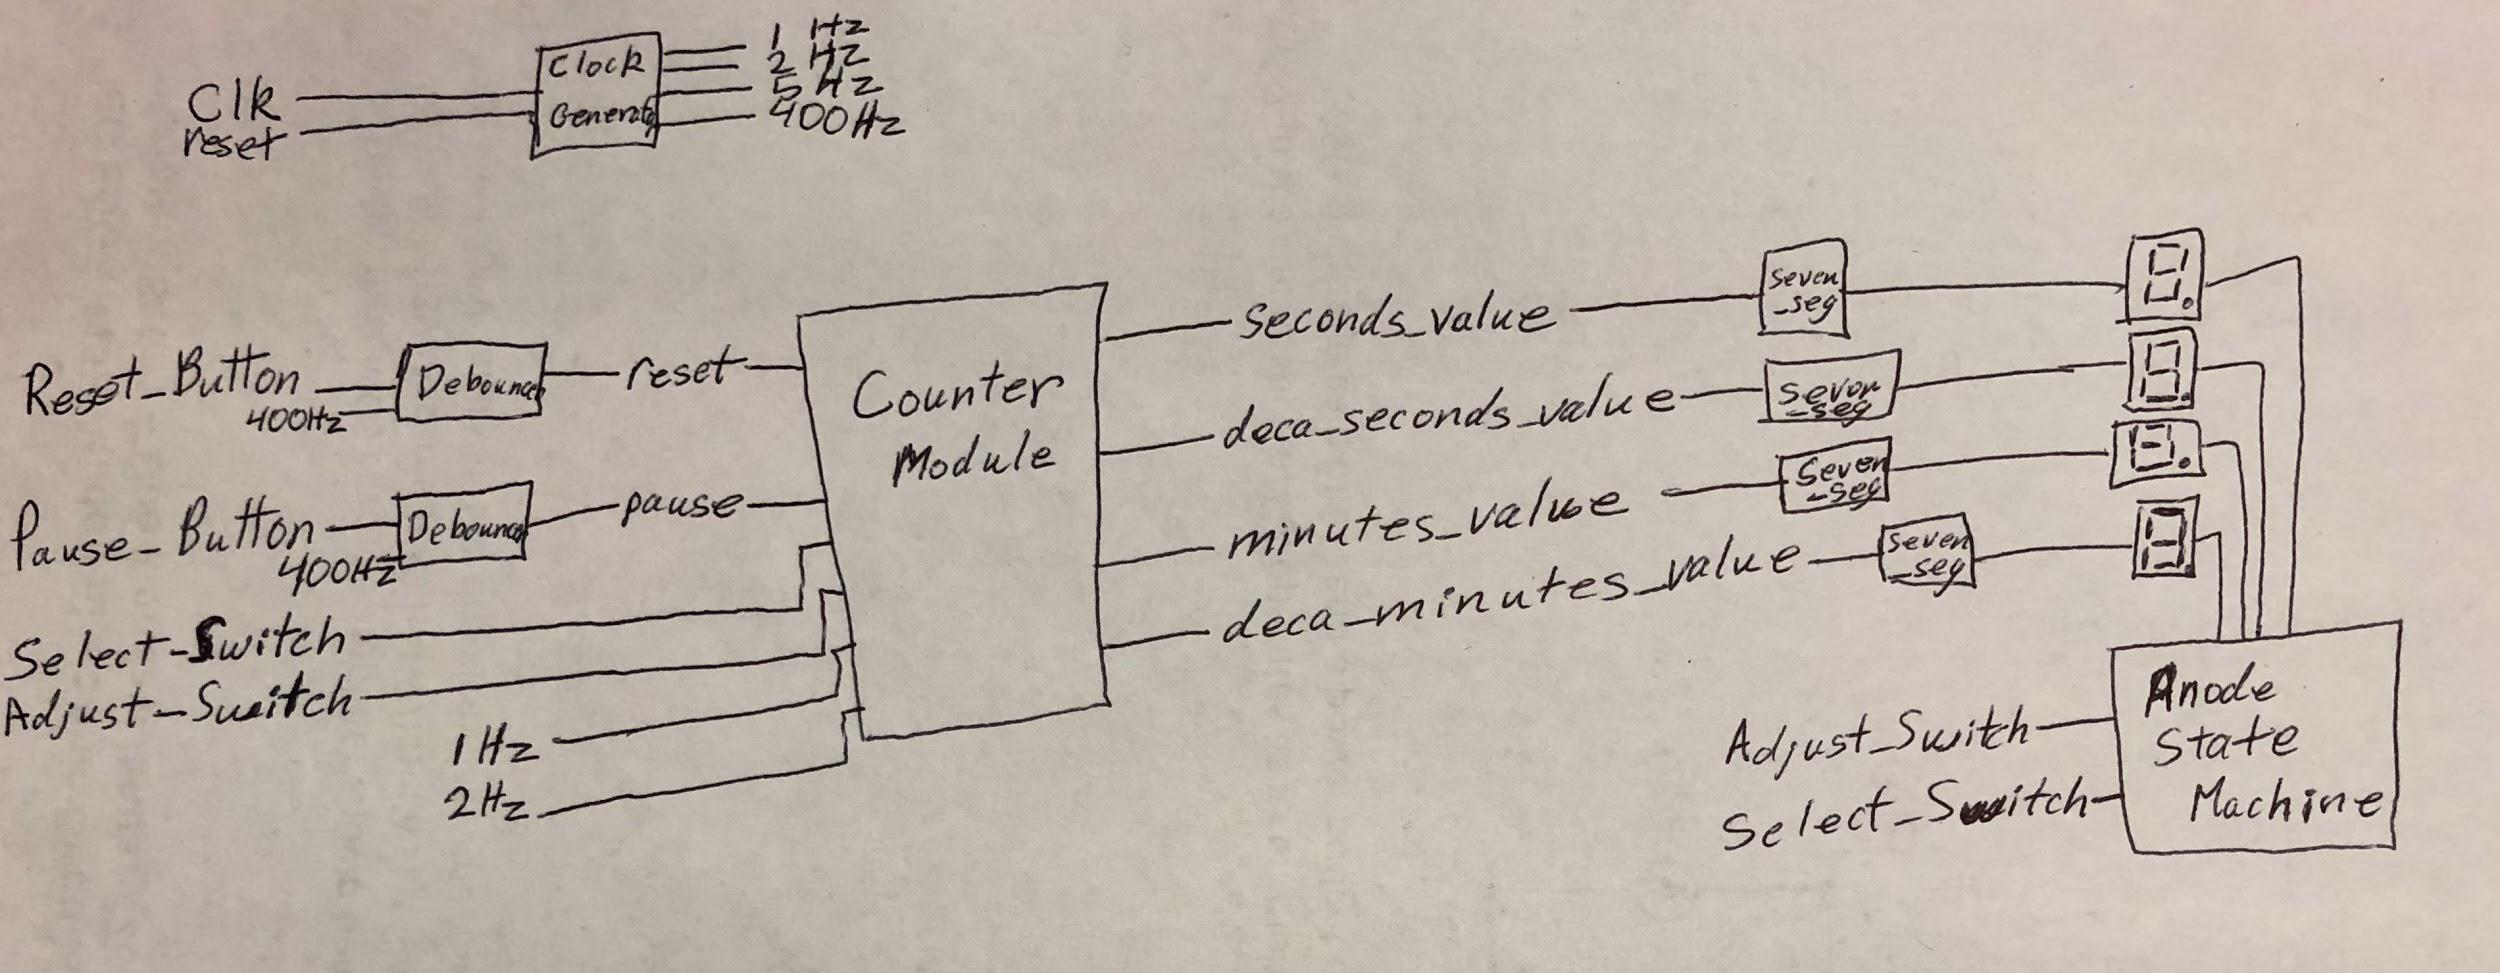 1 Hz
2 Hz
5 Hz
400Hz
Clk
reset
Clock
Generator
Reset_Button
400Hz
Debounce
reset
Pause_Button
400Hz
Debounce
pause
Select_Switch
Adjust_Switch
1Hz
2Hz
Counter
Module
Seconds_value
deca_seconds_value
minutes_value
deca_minutes_value
seven
_seg
seven
_seg
seven
_seg
seven
_seg
Adjust_Switch
Select_Switch
Anode
State
Machine